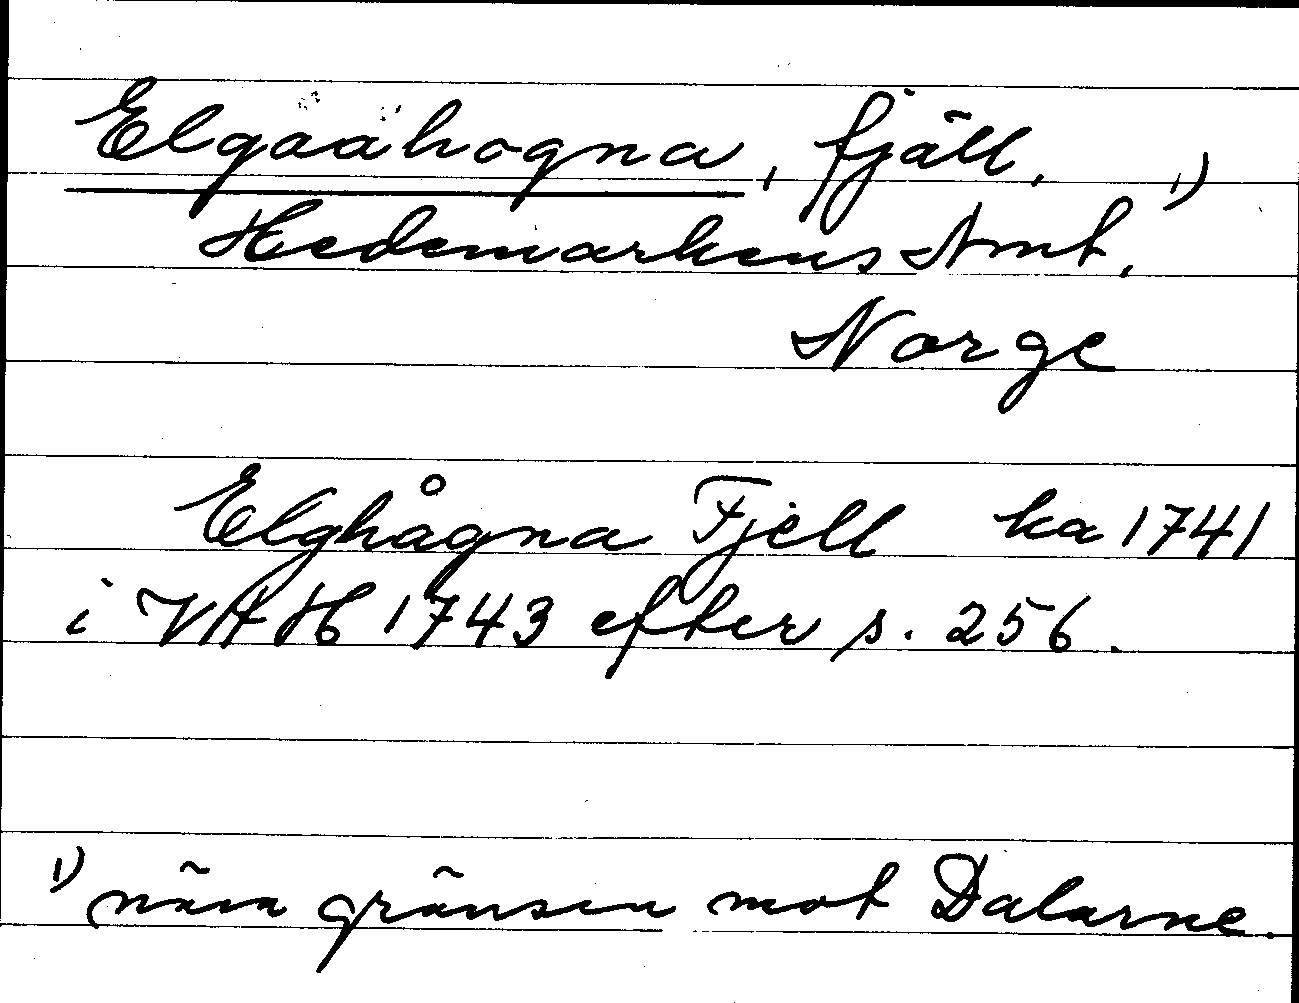 Elgaahogna, fjäll, ¹)
Hedemarkens Amt,
Norge
Elghågna Fjell ka 1741
i VAH 1743 efter s. 256.
¹) nära gränsen mot Dalarne.